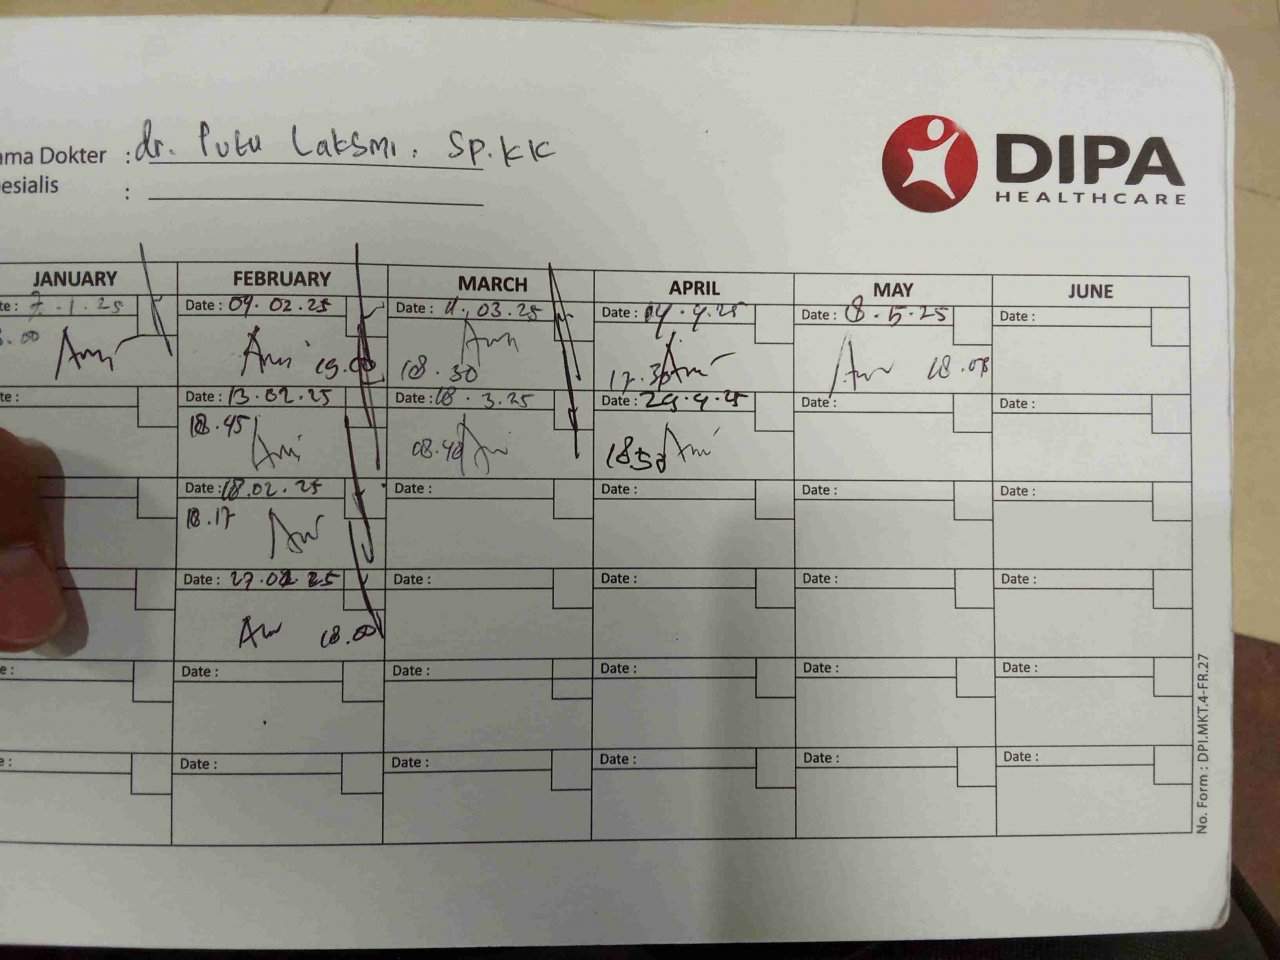 ama Dokter : dr. Putu Laksmi. Sp.KK
esialis :
DIPA
HEALTHCARE
JANUARY FEBRUARY MARCH APRIL MAY JUNE
te: 7.1.25 Date: 04.02.25 Date: 11.03.25 Date: 14.4.25 Date: 8.5.25 Date:
.00 19.00 18.30 17.30 18.08
te: Date: 13.02.25 Date: 18.3.25 Date: 29.4.25 Date: Date:
18.45 08.40 18.50
Date: 18.02.25 Date: Date: Date: Date:
18.17
Date: 27.02.25 Date: Date: Date: Date:
18.00
e: Date: Date: Date: Date: Date:
e: Date: Date: Date: Date: Date:
No. Form : DPI.MKT.4-FR.27